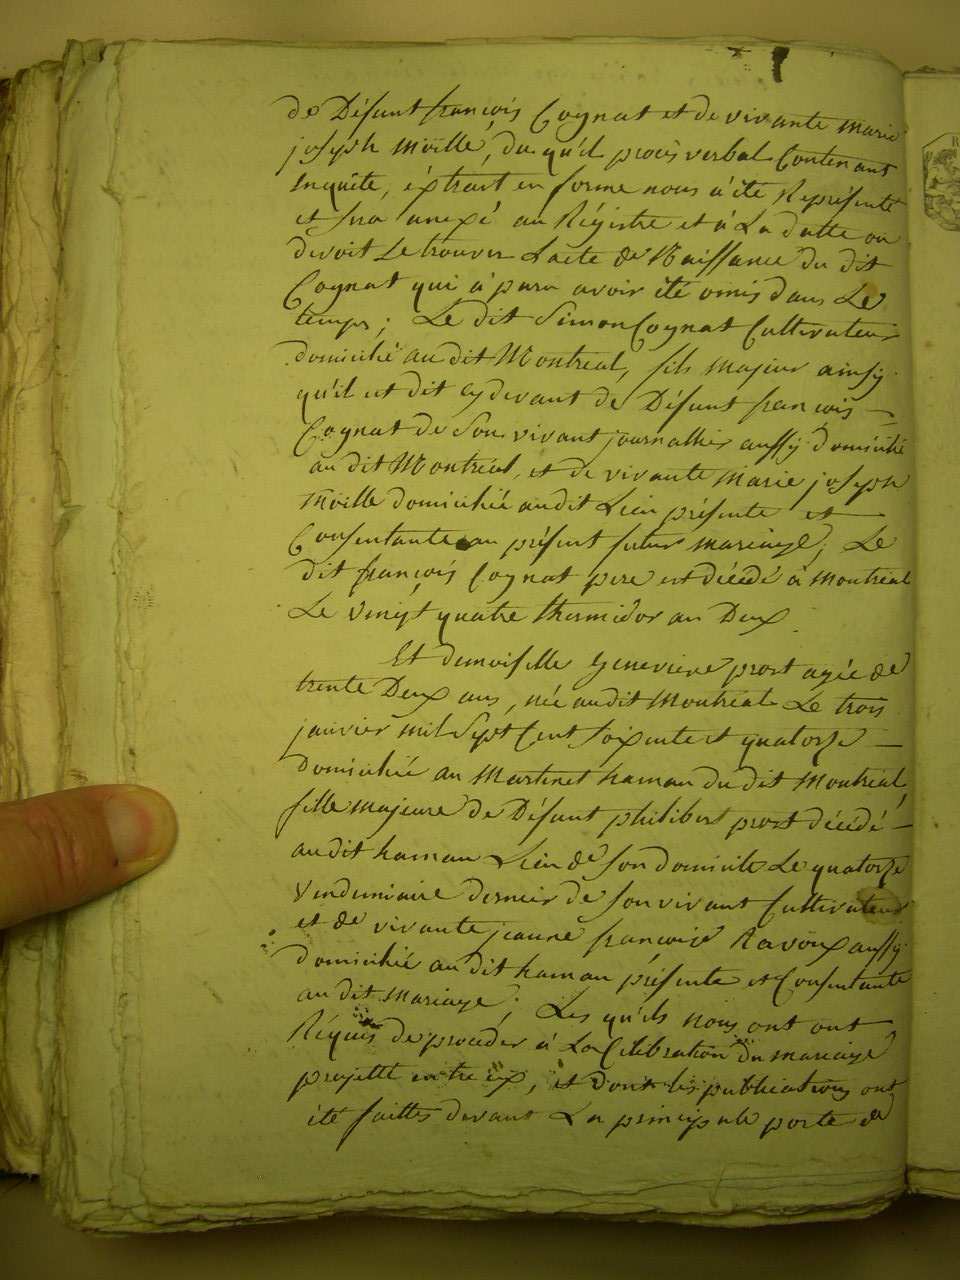 de Défunt françois Cognat et de vivante marie
joseph moïlle, du qu'el procès verbal Contenant
Enquête, éxtrait en forme nous à été Représenté
et sera anexé au Régistre et à La datte ou
devoit se trouver L'acte de Naissance du dit
Cognat qui à paru avoir été omis dans Le
temps; Le dit Simon Cognat Cultivateur
domicilié au dit Montréal, fils majeur ainsy
qu'il est dit cy devant de Défunt françois
Cognat de Son vivant journallier aussy domicilié
au dit Montréal, et de vivante Marie joseph
moïlle domiciliée audit Lieu présente et
Consentante au présent futur mariage; Le
dit françois Cognat pere est décédé à Montréal
Le vingt quatre thermidor an Deux
Et demoiselle Genevieve prost agée de
trente Deux ans, née audit Montréal Le trois
janvier mil Sept Cent Soixente et quatorze
domiciliée au Martinet hamau du dit Montréal,
fille majeure de Défunt philibert prost décédé
audit hamau Lieu de Son domicile Le quatorze
Vendemiaire dernier de Son vivant Cultivateur
et de vivante jeanne françoise Ravoux aussy
domiciliée au dit hamau présente et Consentante
au dit mariage; Les qu'els nous ont ont
Réquis de proceder à La Célébration du mariage
projetté entre eux, et dont les publications ont
été faittes devant La principale porte de